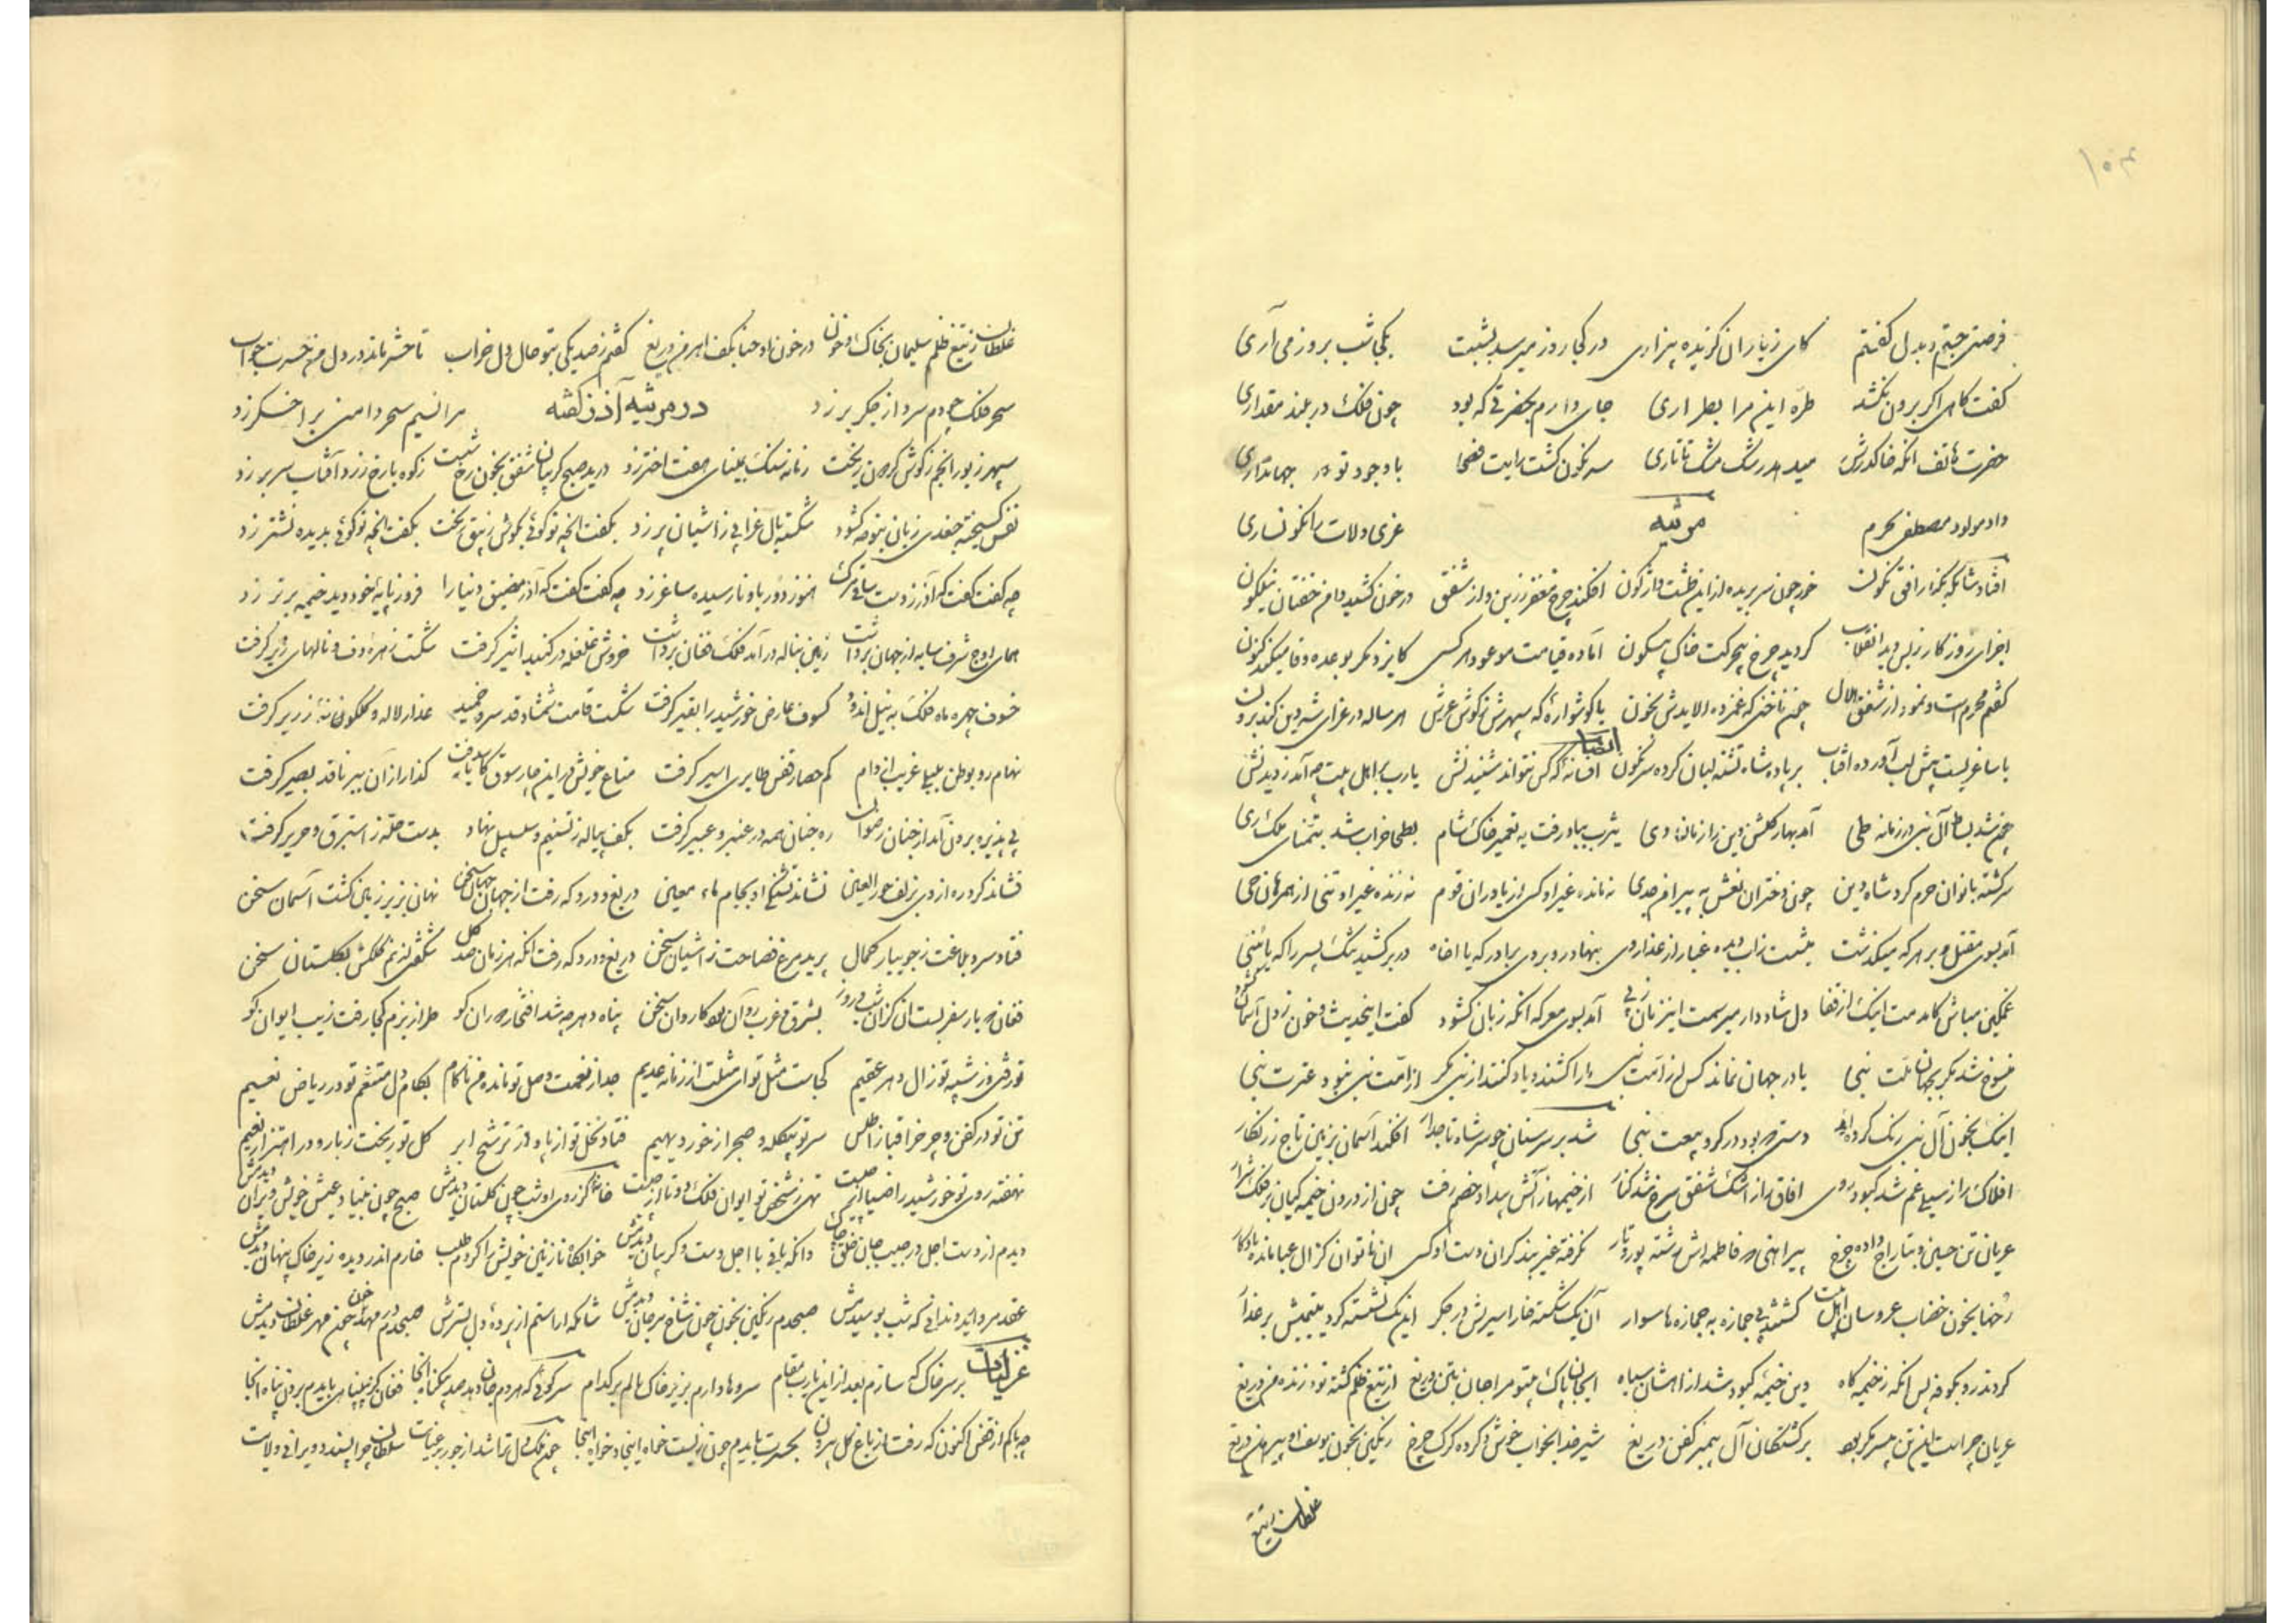 ۱۰۳
فرصتی جستم و بدل گفتم کای ز یاران گزیده بیزاری در کجا روز میرسد بشبت بکجا شب بروز می آری
گفت کاهی اگر برون نکشد طره این مرا بطراری جای دارم بحضرتی که بود چون فلک در بلند مقداری
حضرت هاتف انکه خاک درش میدهد رشک مشک تاتاری سرنگون گشت رایت فصحا با وجود تو در جهانداری
داد مولود مصطفی بحرم مرثیه عزی و لات را نگونساری
افتاد شامگه بکنار افق نگون خور چون سر بریده از این طشت واژگون افکند چرخ مغفر زرین و از شفق در خون کشید دامن خفتان نیلگون
اجزای روزگار ز بس دید انقلاب گردید چرخ بیحرکت خاک بیسکون آماده قیامت موعود هر کسی کایزد مگر بوعده وفا میکند کنون
گفتم محرم است و نمود از شفق هلال چون ناخنی که غمزده آلایدش بخون یا گوشواره که سپهرش ز گوش عرش هر ساله در عزای شه دین کند برون
یا ساغریست پیش لب آورده آفتاب بر یاد شاه تشنه لبان کرده سرنگون ایضا افسانه که کس نتواند شنیدنش یارب بر اهل بیت چه آمد ز دیدنش
چون شد بساط آل نبی در زمانه طی آمد بهار گلشن دین را زمان دی یثرب بباد رفت به تعمیر خاک شام بطحا خراب شد بتمنای ملک ری
سرگشته بانوان حرم گرد شاه دین چون دختران نعش به پیرامن جدی نه مانده غیر او کسی از یاوران قوم نه زنده غیر او تنی از همرهان حی
آمد بسوی مقتل و بر هر که میگذشت میشست ز آب دیده غبار از عذار وی بنهاد رو بروی برادر که یا اخاه در بر کشید تنگ پسر را که یا بنی
غمگین مباش کامدمت اینک از قفا دل شاد دار میرسمت این زمان ز پی آمد بسوی معرکه آنکه زبان گشود گفت این حدیث و خون ز دل آسمان گشود
منسوخ شد مگر بجهان ملت نبی یا در جهان نماند کس از امت نبی ما را کشند و یاد کنند از نبی مگر از امت نبی نبود عترت نبی
اینک بخون آل نبی رنگ کرده‌اند دستی که بود در گرو بیعت نبی شد بر سر سنان چو سر شاه تاجدار افکند آسمان بزمین تاج زرنگار
افلاک را ز سیلی غم شد کبود روی آفاق را ز اشک شفق سرخ شد کنار از خیمها ز آتش بیداد خصم رفت چون از درون خیمگیان بر فلک شرار
عریان تن حسین و بتاراج داده چرخ پیراهنی که فاطمه‌اش رشته پود و تار نگرفته غیر بند گران دست او کسی آن ناتوان کز آل عبا مانده یادگار
رخها بخون خضاب عروسان اهل بیت گشتند بی جهازه به جمازه‌ها سوار آن یک شکسته خار اسیریش در جگر این یک نشسته گرد یتیمیش بر عذار
کردند رو بکوفه پس آنکه ز خیمه گاه وین خیمه کبود شد از آهشان سیاه ای جان پاک بیتو مرا جان بتن دریغ از تیغ ظلم کشته تو و زنده من دریغ
عریان چراست این تن بی سر مگر بود بر کشتگان آل پیمبر کفن دریغ شیر خدا بخواب خوش و کرده گرگ چرخ رنگین بخون یوسف او پیرهن دریغ
غلطان ز تیغ
غلطان ز تیغ ظلم سلیمان بخاک و خون در خون او حنا بکف اهرمن دریغ گفتم ز صد یکی بتو حال دل خراب تا حشر ماند در دل من حسرت جواب
سحر فلک چو دم سرد از جگر برزد در مرثیه آذر گفته مرا نسیم سحر دامنی بر اخگر زد
سپهر زیور انجم ز گوش گردون ریخت زمانه سنگ بمینای هفت اختر زد درید صبح گریبان شفق بخون رخ شست ز کوه با رخ زرد آفتاب سر بر زد
نفس گسیخته جغدی زبان بنوحه گشود شکسته بال غرابی ز آشیان پر زد بگفت آنچه تو گوئی بگوش زیبق ریخت بگفت آنچه تو گوئی بدیده نشتر زد
چه گفت گفت که آذر ز دست ساقی مرگ هنوز دور باو نارسیده ساغر زد چه گفت گفت که آذر مضیق دنیا را فرود پایه خود دید خیمه برتر زد
همای اوج شرف سایه از جهان برداشت زمین بناله در آمد فلک فغان برداشت خروش غلغله در گنبد اثیر گرفت شکست زهره دف و نالهای زیر گرفت
خسوف چهره ماه فلک به نیل اندود کسوف عارض خورشید را بقیر گرفت شکست قامت شمشاد و قد سرو خمید عذار لاله و گلگونه زریر گرفت
نهاد رو بوطن بلبلی غریب از دام کم حصار قفس طایری اسیر گرفت متاع خویش در این چار سوق کاسد یافت گذار از آن ببر ناقد بصیر گرفت
پی پذیره برون آمد از جنان رضوان ره جنان همه در عنبر و عبیر گرفت بکف پیاله ز تسنیم و سلسبیل نهاد بدست حله ز استبرق و حریر گرفت
فشاند گرد ره از وی بزلف حور العین نشاند تشنگی او بجام ماء معین دریغ و درد که رفت از جهان جهان سخن نهان بزیر زمین گشت آسمان سخن
فتاد سرو بلاغت ز جویبار کمال پرید مرغ فصاحت ز آشیان سخن دریغ و درد که رفت انکه هر زمان صد گل شکفتی از نم کلکش بگلستان سخن
فغان که بار سفر بست آن کز آن شب و روز بشرق و غرب روان بود کاروان سخن پناه دهر چه شد افتخار دوران کو طراز بزم کجا رفت زیب ایوان کو
تو رفتی و ز شبیه تو زال دهر عقیم کجاست مثل تو ای مثلت از زمانه عدیم جدا ز نعمت وصل تو مانده من ناکام بکام دل متنعم تو در ریاض نعیم
تن تو در کفن و چرخ را قبا ز اطلس سر تو بی کله و صبح را ز خور دیهیم فتاد نخل تو از پا و از ترشح ابر گل تو ریخت ز بار و در اهتزاز نسیم
نهفته روی تو خورشید را ضیا از چیست تهی ز شخص تو ایوان فلک دو تا از چیست خانه کز روی او شب چون گلستان دیدمش صبح چون بنیاد عیش خویش ویران دیدمش
دیدم از دست اجل در جیب جان خلق چاک وانکه باقی با اجل دست و گریبان دیدمش خوابگاه نازنین خویش را کردم طلب خارم اندر دیده زیر خاک پنهان دیدمش
عقد مروارید دندانی که شب بوسیدمش صبحدم رنگین بخون چون شاخ مرجان دیدمش شامگه آراستم از پرده دل بسترش صبحدم در مهد خون چون مهر غلطان دیدمش
غزلیات بر سر خاک که سازم بعد از این یارب مقام سروها دارم بزیر خاک نالم بر کدام سر کوئی که هر دم جان دهد صد بیگناه آنجا فغان کز بی‌پناهی بایدم بردن پناه آنجا
چه باکم از قفس اکنون که رفت از باغ گل بیرون بحسرت بایدم چون زیست خواه اینجا و خواه آنجا چو ملک دل ترا شد از جور بر عنایت سلطان چرا پسندد ویرانی ولایت